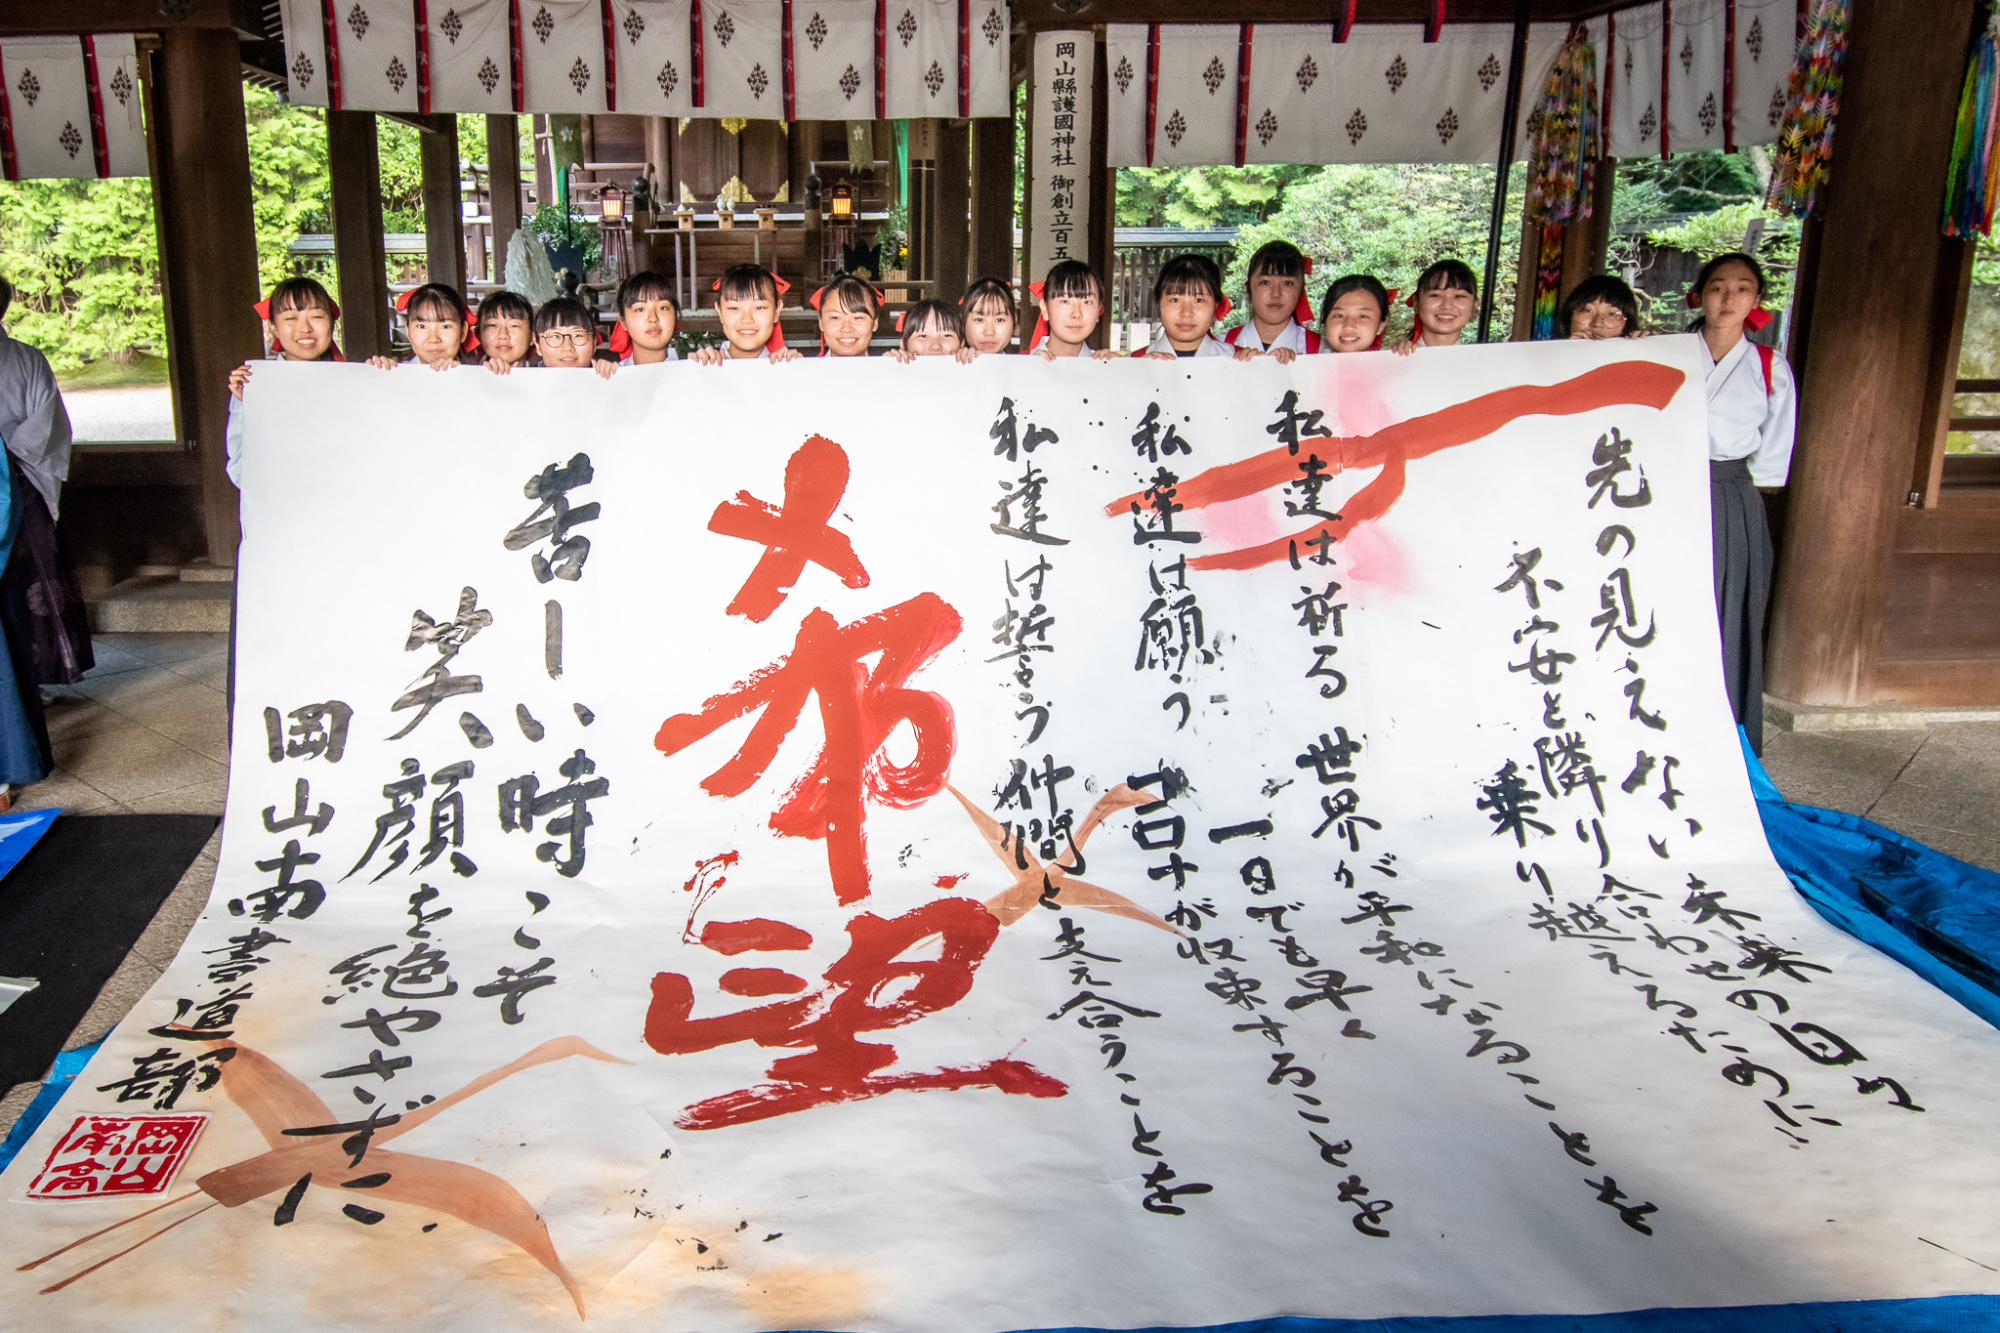 岡山縣護國神社 御創立百五
先の見えない未来の日々
不安と隣り合わせの
乗り越えるために
私達は祈る 世界が平和になることを
一日でも早く
私達は願う コロナが収束することを
私達は誓う 仲間と支え合うことを
希望
苦しい時こそ
笑顔を絶やさずに
岡山南書道部